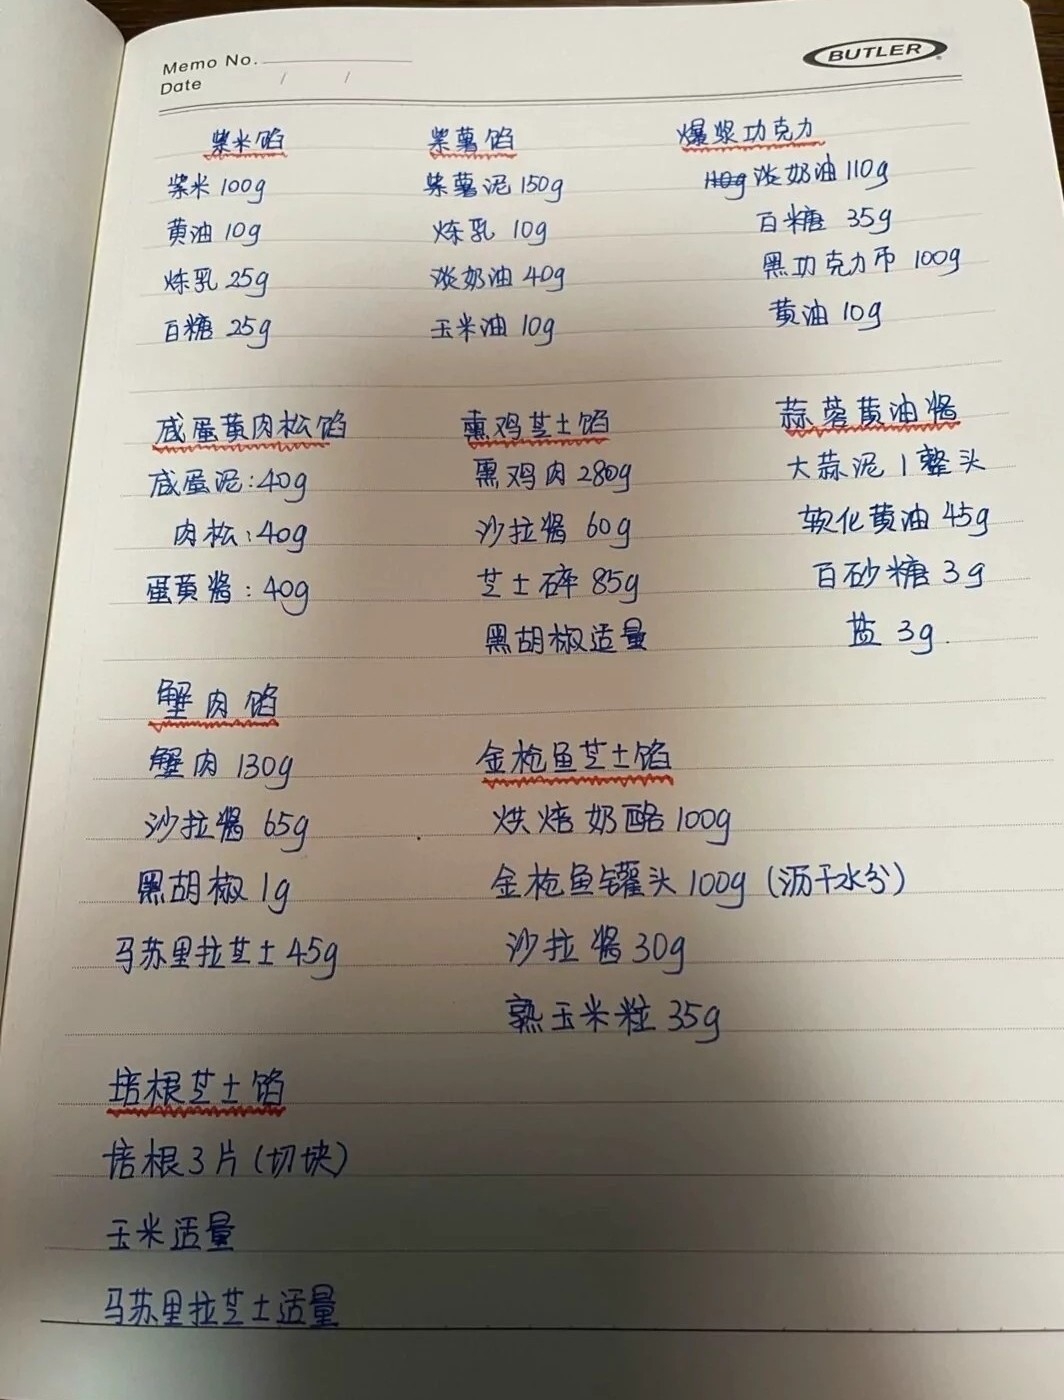 Memo No.
Date / /
BUTLER
紫米馅
紫米 100g
黄油 10g
炼乳 25g
白糖 25g
紫薯馅
紫薯泥 150g
炼乳 10g
淡奶油 40g
玉米油 10g
爆浆巧克力
110g 淡奶油 110g
白糖 35g
黑巧克力币 100g
黄油 10g
咸蛋黄肉松馅
咸蛋泥:40g
肉松:40g
蛋黄酱:40g
熏鸡芝士馅
熏鸡肉 280g
沙拉酱 60g
芝士碎 85g
黑胡椒适量
蒜蓉黄油酱
大蒜泥 1 整头
软化黄油 45g
白砂糖 3g
盐 3g.
蟹肉馅
蟹肉 130g
沙拉酱 65g
黑胡椒 1g
马苏里拉芝士 45g
金枪鱼芝士馅
烘焙奶酪 100g
金枪鱼罐头 100g (沥干水分)
沙拉酱 30g
熟玉米粒 35g
培根芝士馅
培根3片(切块)
玉米适量
马苏里拉芝士适量